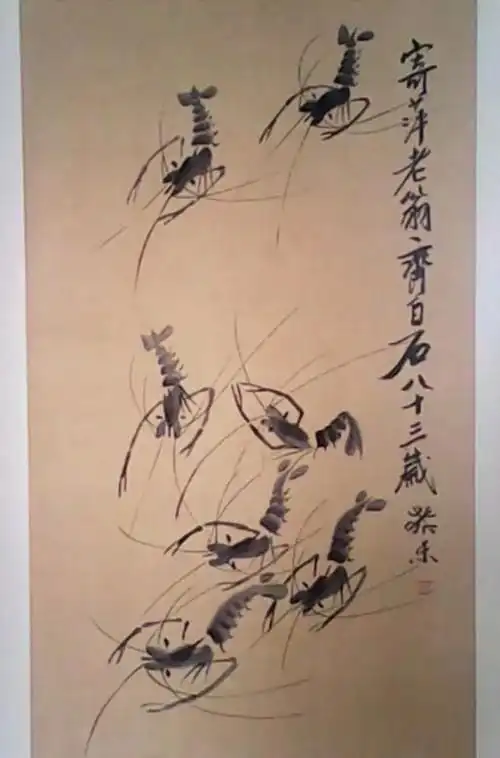 寄萍老翁齊白石八十三歲